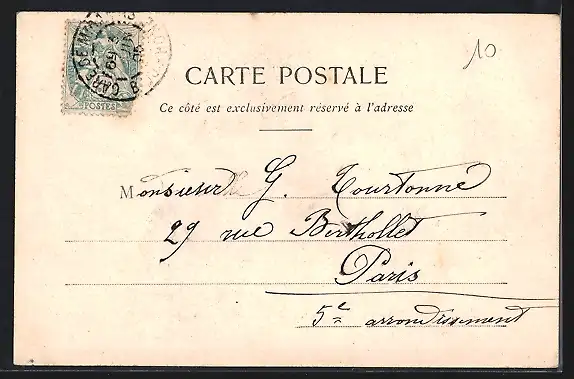 10
CARTE POSTALE
Ce côté est exclusivement réservé à l'adresse
Monsieur G. Tourtonne
29 rue Berthollet
Paris
5e arrondissement
POSTES
GARE DE